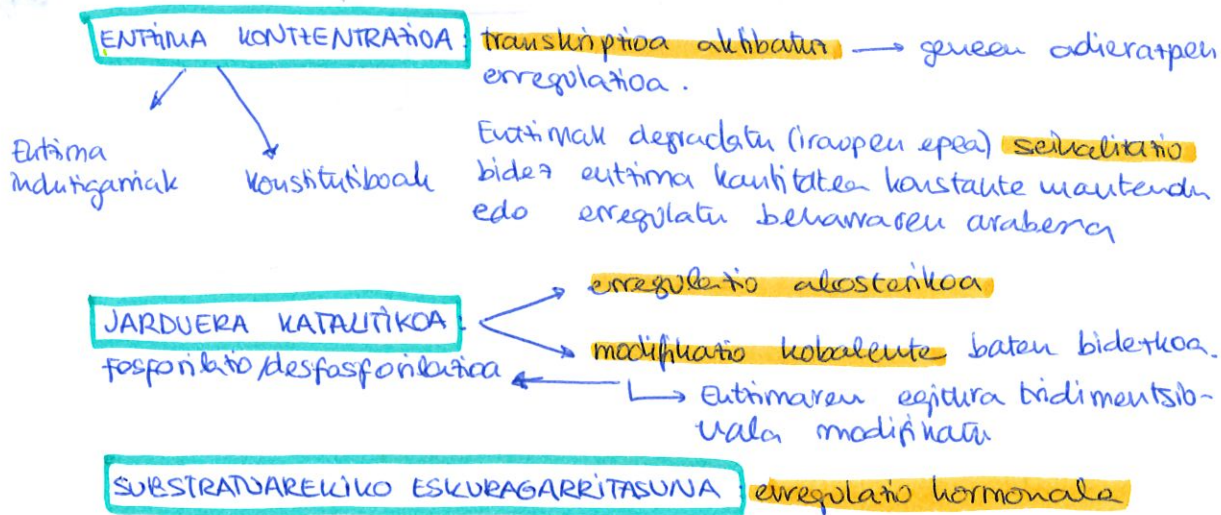 ENTZIMA KONTZENTRAZIOA: transkripzioa aktibatuz → geneen adierazpen
erregulazioa.
Entzima induzigarriak
konstitutiboak
Entzimak degradatu (iraupen epea) seinalizazio
bidez entzima kantitatea konstante mantendu
edo erregulatu beharraren arabera
JARDUERA KATALITIKOA:
erregulazio alosterikoa
modifikazio kobalente baten bidezkoa.
fosforilazio/desfosforilazioa
→ Entzimaren egitura tridimentsio-
nala modifikatu
SUBSTRATUAREKIKO ESKURAGARRITASUNA erregulazio hormonala